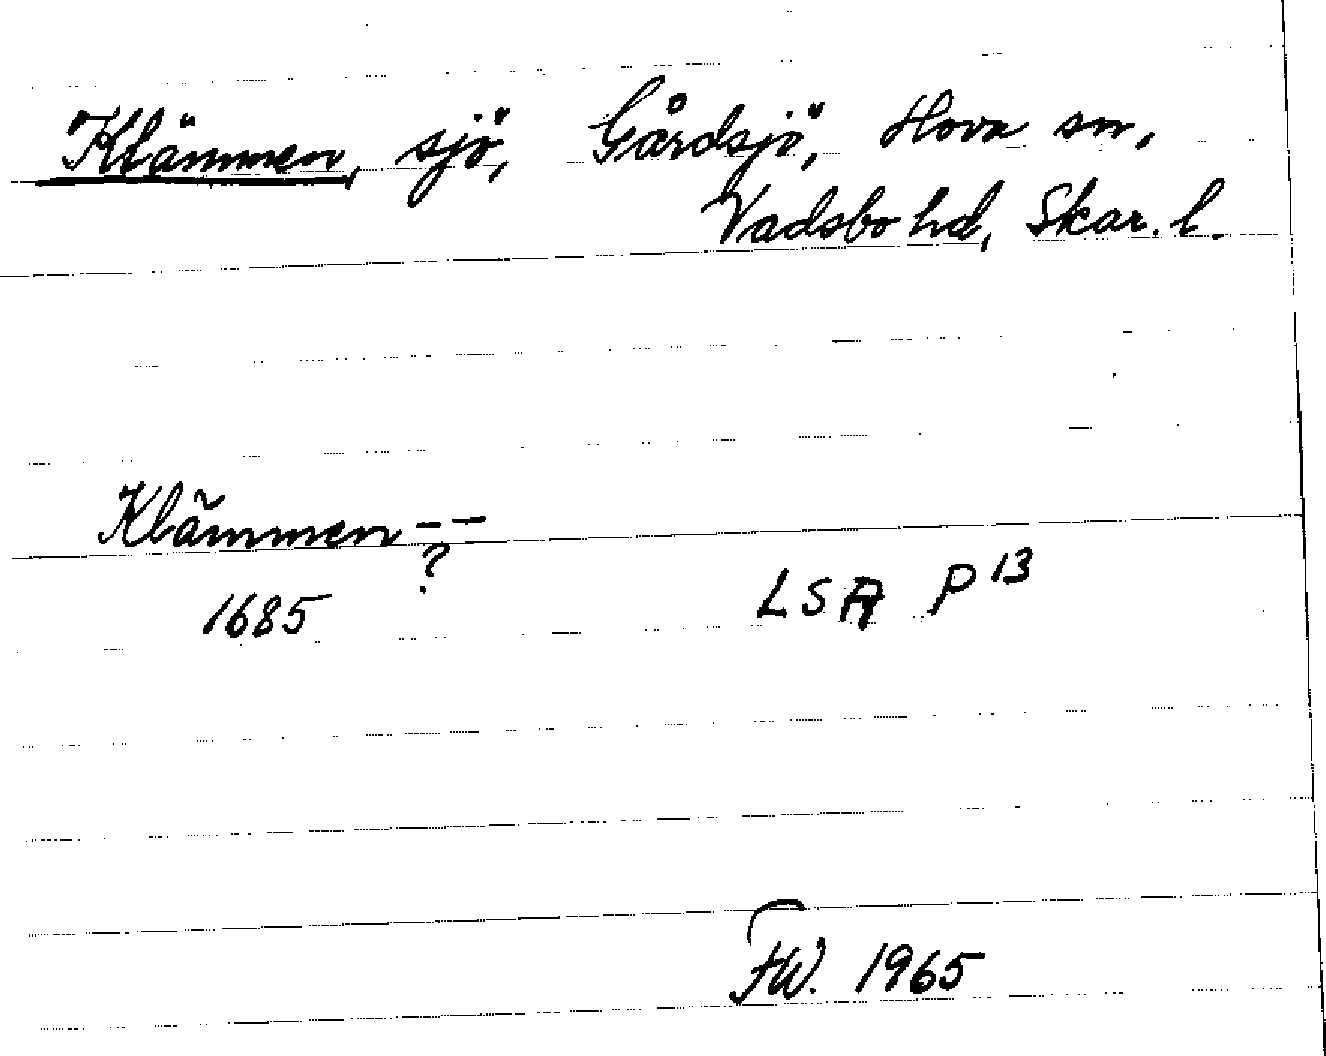 Klämmen, sjö, Gårdsjö, Hova sn,
Vadsbo hd, Skar. l.
Klãmmen--
?
1685 LSA P 13
FW. 1965